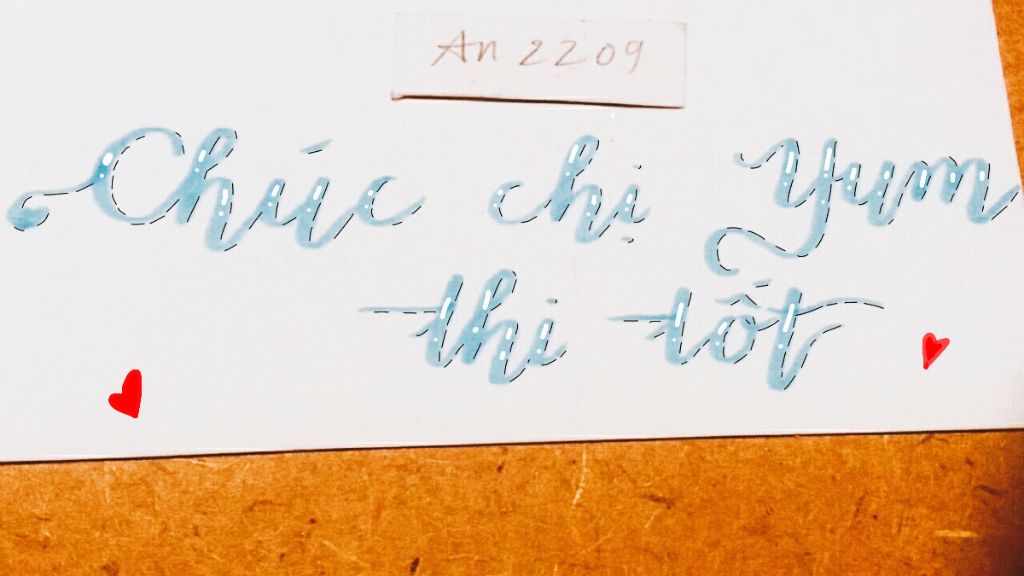 An 2209
Chúc chị Yum
thi tốt